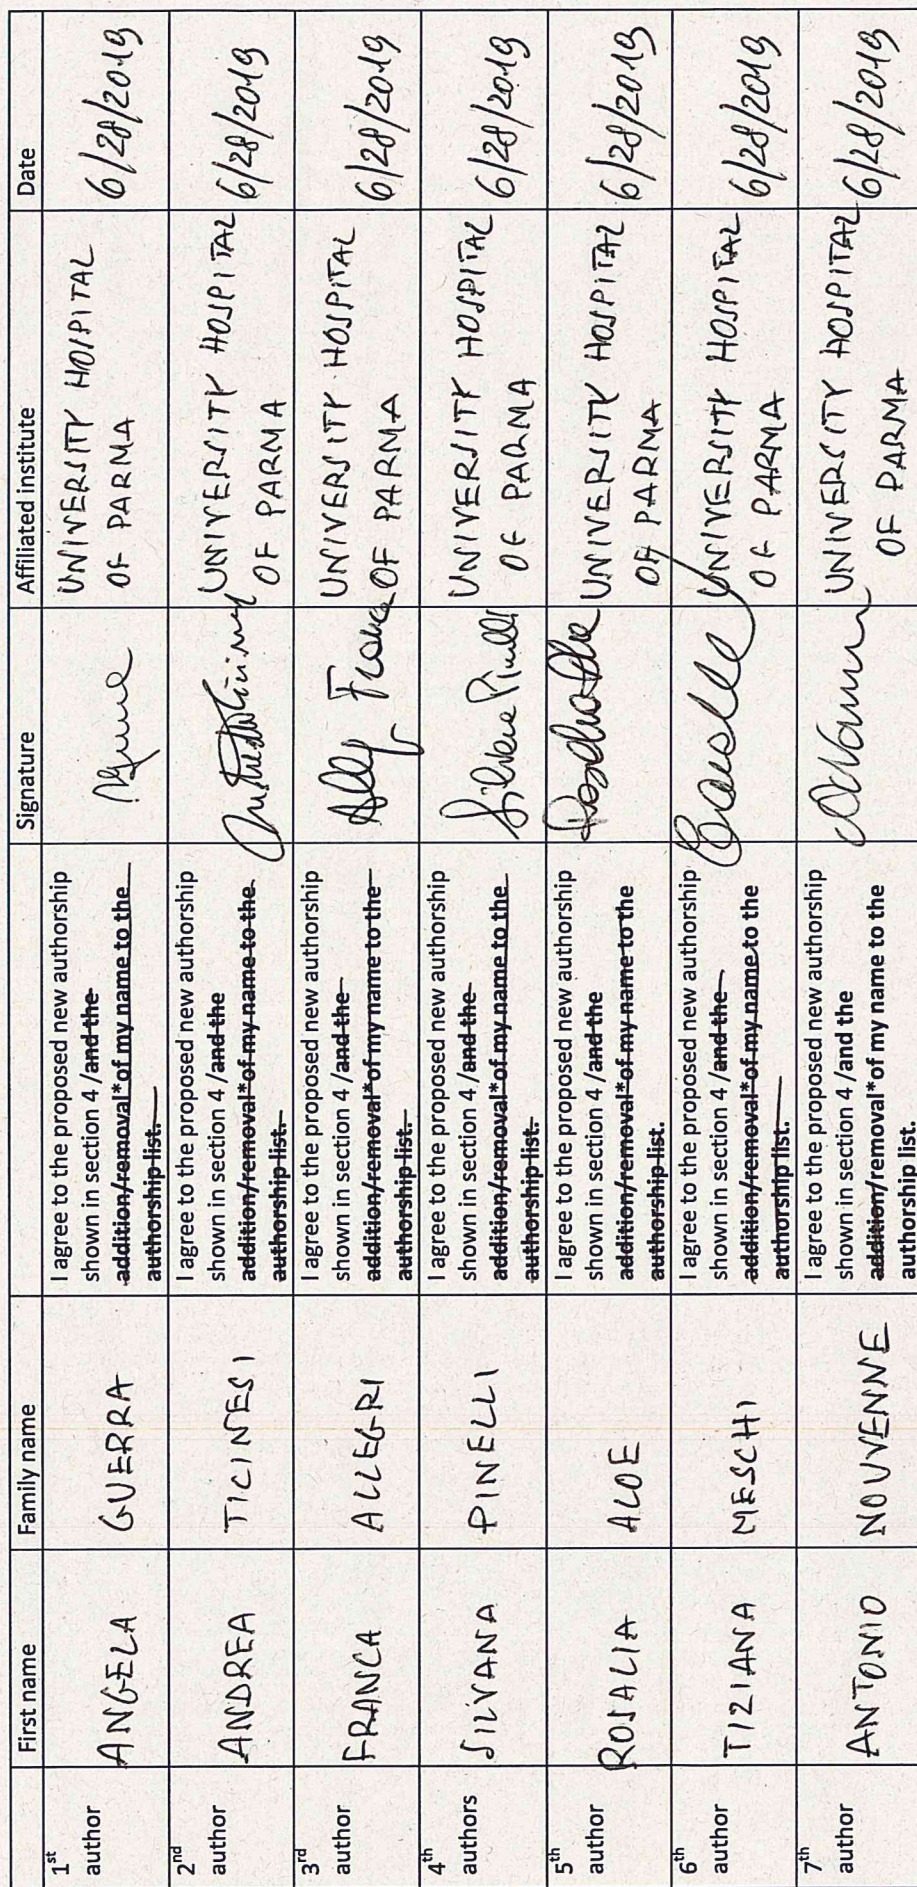 First name Family name Signature Affiliated institute Date
1st author
ANGELA
GUERRA
I agree to the proposed new authorship
shown in section 4 /and the
addition/removal*of my name to the
authorship list.
UNIVERSITY HOSPITAL
OF PARMA
6/28/2019
2nd author
ANDREA
TICINESI
I agree to the proposed new authorship
shown in section 4 /and the
addition/removal*of my name to the
authorship list.
UNIVERSITY HOSPITAL
OF PARMA
6/28/2019
3rd author
FRANCA
ALLEGRI
I agree to the proposed new authorship
shown in section 4 /and the
addition/removal*of my name to the
authorship list.
Franca
UNIVERSITY HOSPITAL
OF PARMA
6/28/2019
4th authors
SILVANA
PINELLI
I agree to the proposed new authorship
shown in section 4 /and the
addition/removal*of my name to the
authorship list.
Silvana Pinelli
UNIVERSITY HOSPITAL
OF PARMA
6/28/2019
5th author
ROSALIA
ALOE
I agree to the proposed new authorship
shown in section 4 /and the
addition/removal*of my name to the
authorship list.
UNIVERSITY HOSPITAL
OF PARMA
6/28/2019
6th author
TIZIANA
MESCHI
I agree to the proposed new authorship
shown in section 4 /and the
addition/removal*of my name to the
authorship list.
UNIVERSITY HOSPITAL
OF PARMA
6/28/2019
7th author
ANTONIO
NOUVENNE
I agree to the proposed new authorship
shown in section 4 /and the
addition/removal*of my name to the
authorship list.
UNIVERSITY HOSPITAL
OF PARMA
6/28/2019